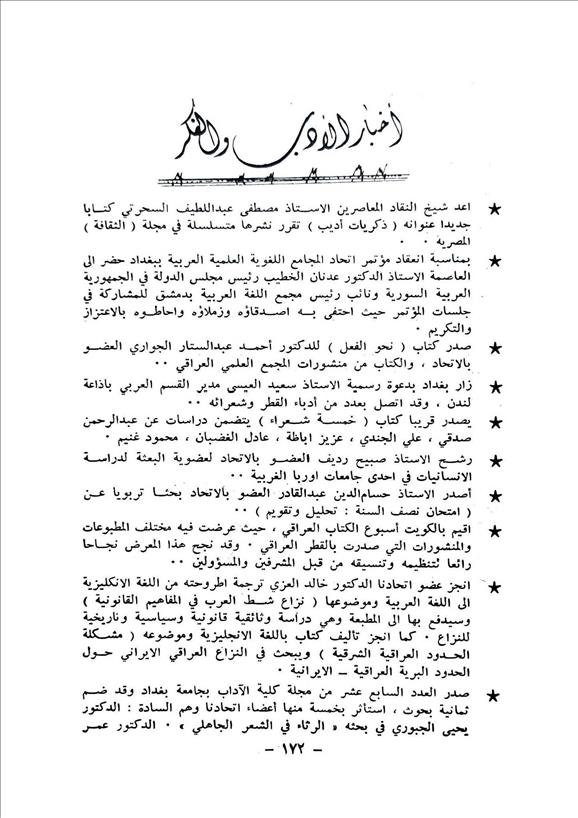 أخبار الأدب والفكر
★ اعد شيخ النقاد المعاصرين الاستاذ مصطفى عبداللطيف السحرتي كتابا
جديدا عنوانه ( ذكريات أديب ) تقرر نشرها متسلسلة في مجلة ( الثقافة )
المصرية ٠ ٠
★ بمناسبة انعقاد مؤتمر اتحاد المجامع اللغوية العلمية العربية ببغداد حضر الى
العاصمة الاستاذ الدكتور عدنان الخطيب رئيس مجلس الدولة في الجمهورية
العربية السورية ونائب رئيس مجمع اللغة العربية بدمشق للمشاركة في
جلسات المؤتمر حيث احتفى به اصدقاؤه وزملاؤه واحاطوه بالاعتزاز
والتكريم ٠
★ صدر كتاب ( نحو الفعل ) للدكتور أحمد عبدالستار الجواري العضو
بالاتحاد ، والكتاب من منشورات المجمع العلمي العراقي ٠٠
★ زار بغداد بدعوة رسمية الاستاذ سعيد العيسى مدير القسم العربي باذاعة
لندن ، وقد اتصل بعدد من أدباء القطر وشعرائه ٠٠
★ يصدر قريبا كتاب ( خمسة شعراء ) يتضمن دراسات عن عبدالرحمن
صدقي ، علي الجندي ، عزيز اباظة ، عادل الغضبان ، محمود غنيم ٠
★ رشح الاستاذ صبيح رديف العضو بالاتحاد لعضوية البعثة لدراسة
الانسانيات في احدى جامعات اوربا الغربية ٠٠
★ أصدر الاستاذ حسام‌الدين عبدالقادر العضو بالاتحاد بحثا تربويا عن
( امتحان نصف السنة : تحليل وتقويم ) ٠٠
★ اقيم بالكويت أسبوع الكتاب العراقي ، حيث عرضت فيه مختلف المطبوعات
والمنشورات التي صدرت بالقطر العراقي ٠ وقد نجح هذا المعرض نجاحا
رائعا لتنظيمه وتنسيقه من قبل المشرفين والمسؤولين ٠٠
★ انجز عضو اتحادنا الدكتور خالد العزي ترجمة اطروحته من اللغة الانكليزية
الى اللغة العربية وموضوعها ( نزاع شط العرب في المفاهيم القانونية )
وسيدفع بها الى المطبعة وهي دراسة وثائقية قانونية وسياسية وتاريخية
للنزاع ٠ كما انجز تاليف كتاب باللغة الانجليزية وموضوعه ( مشكلة
الحدود العراقية الشرقية ) ويبحث في النزاع العراقي الايراني حول
الحدود البرية العراقية ــ الايرانية ٠
★ صدر العدد السابع عشر من مجلة كلية الآداب بجامعة بغداد وقد ضم
ثمانية بحوث ، استأثر بخمسة منها أعضاء اتحادنا وهم السادة : الدكتور
يحيى الجبوري في بحثه « الرثاء في الشعر الجاهلي » ٠ الدكتور عمر
– ١٧٢ –